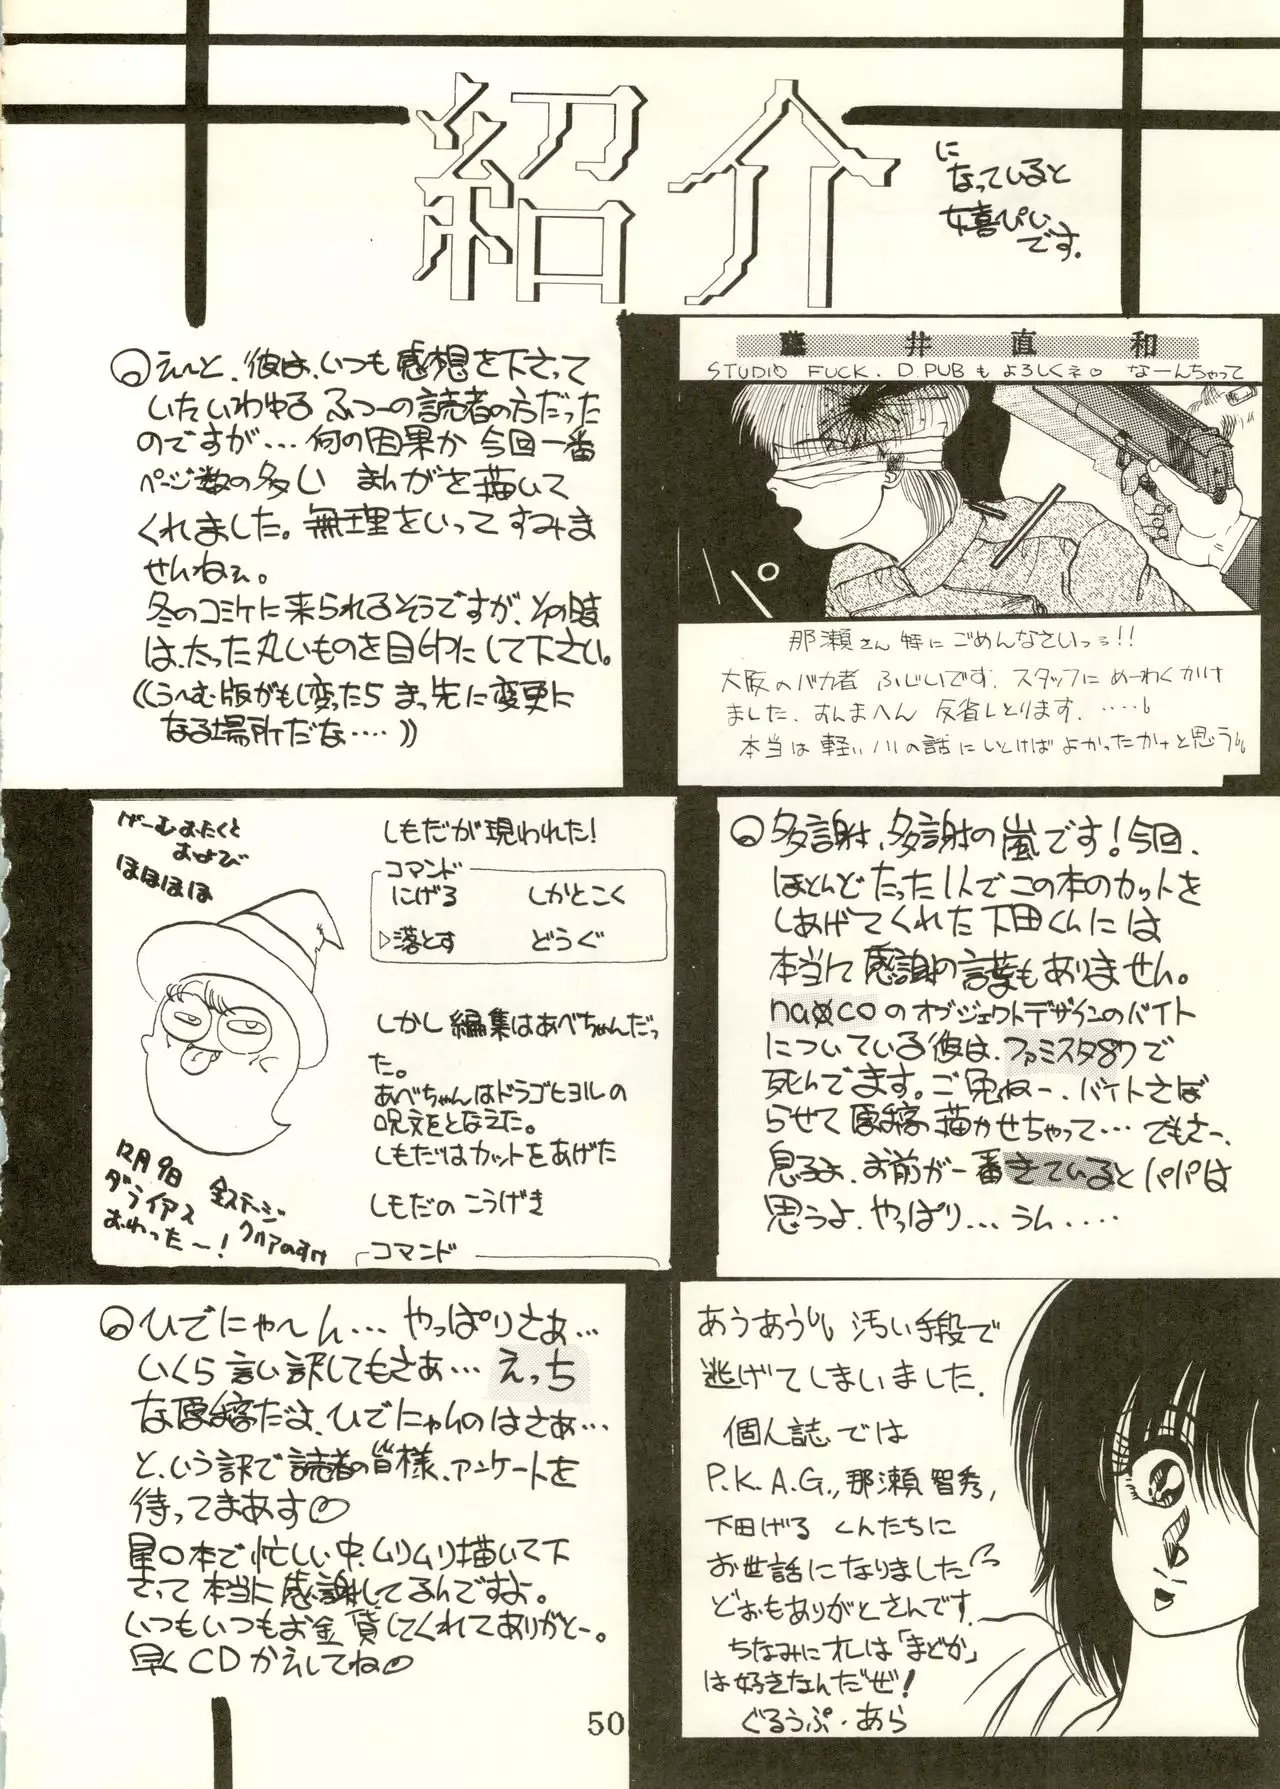 紹介
に
なっていると
嬉ぴい
です.
えーと、彼は、いつも感想を下さって
いたいわゆるふつーの読者の方だった
のですが…何の因果か今回一番
ページ数の多い まんがを描いて
くれました。無理をいってすみま
せんねェ。
冬のコミケに来られるそうですが、その時
は、たった丸いものを目印にして下さい。
((うーむ版がもし変ったらまっ先に変更に
なる場所だな‥‥))
藤井直和
STUDIO FUCK. D.PUBもよろしくネ。なーんちゃって
那瀬さん特にごめんなさいっっ!!
大阪のバカ者 ふじいです. スタッフにめーわくかけ
ました. すんまへん 反省しとります.‥‥
本当は軽いノリの話にしとけばよかったかナと思う
げーむおたくと
および
ほほほほ
12月9日
ダライアス
全ステージ
クリアのすけ
おわった〜!
しもだが現われた!
コマンド
にげる しかとこく
▷落とす どうぐ
しかし編集はあべちゃんだっ
た。
あべちゃんはドラゴヒヨルの
呪文をとなえた。
しもだはカットをあげた
しもだの こうげき
コマンド
多謝、多謝の嵐です!今回、
ほとんどたった1人でこの本のカットを
しあげてくれた下田くんには
本当に感謝の言葉もありません。
namcoのオブジェクトデザインのバイト
についている彼は、ファミスタ87で
死んでます。ご免ねー、バイトさぼ
らせて原稿描かせちゃって…でもさー、
息子よ、お前が一番きているとパパは
思うよ、やっぱり…うん‥‥
ひでにゃ〜ん… やっぱりさぁ…
いくら言い訳してもさぁ… えっち
な原稿だよ、ひでにゃんのはさぁ…
と、いう訳で読者の皆様、アンケートを
待ってまぁす
星の本で忙しい中、ムリムリ描いて下
さって本当に感謝してるんですよ。
いつもいつもお金貸してくれてありがとー。
早くCDかえしてね
あうあう 汚い手段で
逃げてしまいました.
個人誌では
P.K.A.G., 那瀬智秀,
下田げる くんたちに
お世話になりました
どぉもありがとさんです.
ちなみにオレは「まどか」
は好きなんだぜ!
ぐるうぷ・あら
50